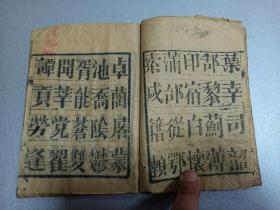 葉幸司韶
郜黎薊薄
印宿白懷
蒲邰從鄂
索咸籍賴
卓藺屠蒙
池喬陰鬱
胥能蒼雙
聞莘党翟
譚貢勞逢